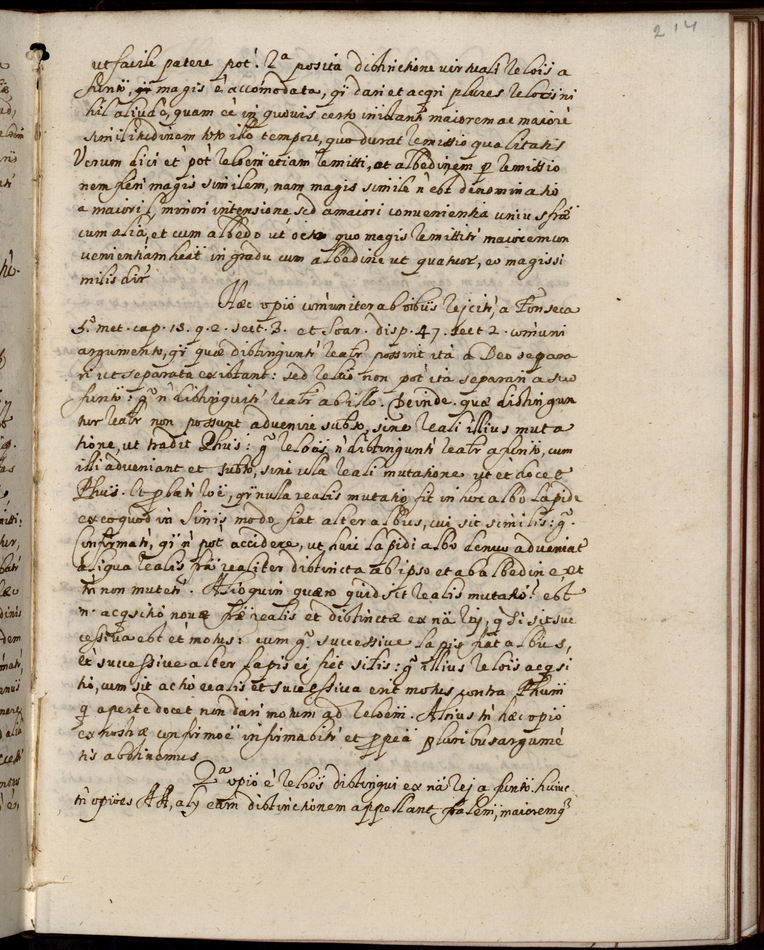 214
ut facile patere pot. 2ª posita distinctione virtuali relõis a
funto, magis ẽ accõmodata, qꝫ dari et acqri plures relões ni
hil aliud ẽ, quam ẽẽ in quovis certo instanti maiorem ac maiorẽ
similitudinem toto illo tempore, quo durat remissio qualitatis
Verum dici et pot reloem etiam remitti, at albedinem remissio
nem fieri magis similem, nam magis simile ñ est denominatio
a maiori l. minori intensione sed a maiori convenientia unius
cum alia, et cum albedo ut octo quo magis remittit maiorem con
venientiam heat in gradu cum albedine ut quatuor, eo magis si
milis dir
Hæc opio comuniter ab oibus rejcit, a Fonseca
5. met. cap. 15. q. 2. sect. 3. et Soar. disp. 47. sect 2. comuni
argumento, quæ distingunt realr possint ita a Deo separa
ri ut separata existant: sed relõ non pot ita separari a suo
funto: g. ñ distinguit realr ab illo. Deinde. quæ distingun
tur realr non possunt advenire subto, sine reali illius muta
tione, ut tradit Phus: g. relões ñ distingunt realr a funto, cum
illi adveniant et subto, sine ulla reali mutatione ut et docet
Phus. et probat, nulla realis mutatio fit in hoc albo lapide
ex eo quod in Sinis modo fiat alter albus, cui sit similis: g.
infirmati, ñ pot accidere, ut huic lapidi albo denuo adveniat
aliqua realis realiter distincta ab ipso et ab albedine et
tñ non mutet. Alioquin quæro quid sit realis mutatio? est
n. acqsitio novæ realis et distinctæ ex nã rej, q si sit suc
cessiva est et motus: cum g. successive lapis fiat albus,
et successive alter lapis ej fiet silis: g. illius relõis acqsi
tio, cum sit actio realis et successiva erit motus contra Phum
q aperte docet non dari motum ad reloem. Alrius tñ hæc opio
ex nostræ infirmabit et ppea pluribus argumẽ
tis abstinemus
2ª opio ẽ relões distingui ex nã rej a funto. huius
tñ opiões AA, alij eam distinctionem appellant, maioremq